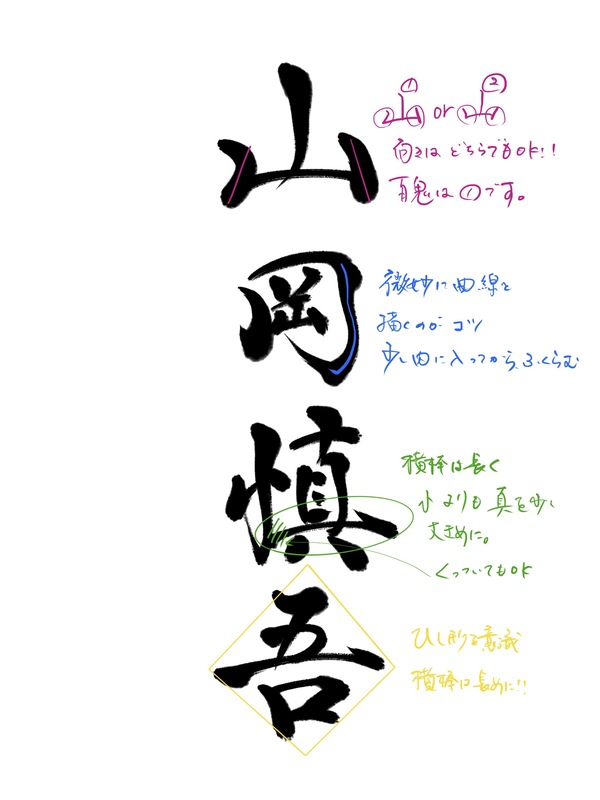 山
① ③
② or
向きはどちらでもOK!!
百鬼は①です。
岡
微妙に曲線を
描くのがコツ
少し内に入ってから、ふくらむ
慎
横棒は長く
忄よりも真を少し
大きめに。
くっついてもOK
吾
ひし形を意識
横棒は長めに!!